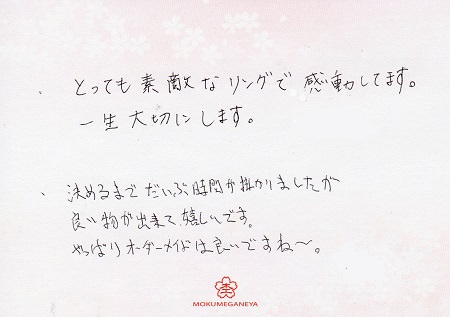 ・とっても素敵なリングで感動してます。
一生大切にします。
・決めるまでだいぶ時間が掛かりましたが
良い物が出来て、嬉しいです。
やっぱりオーダーメイドは良いですね〜。
MOKUMEGANEYA